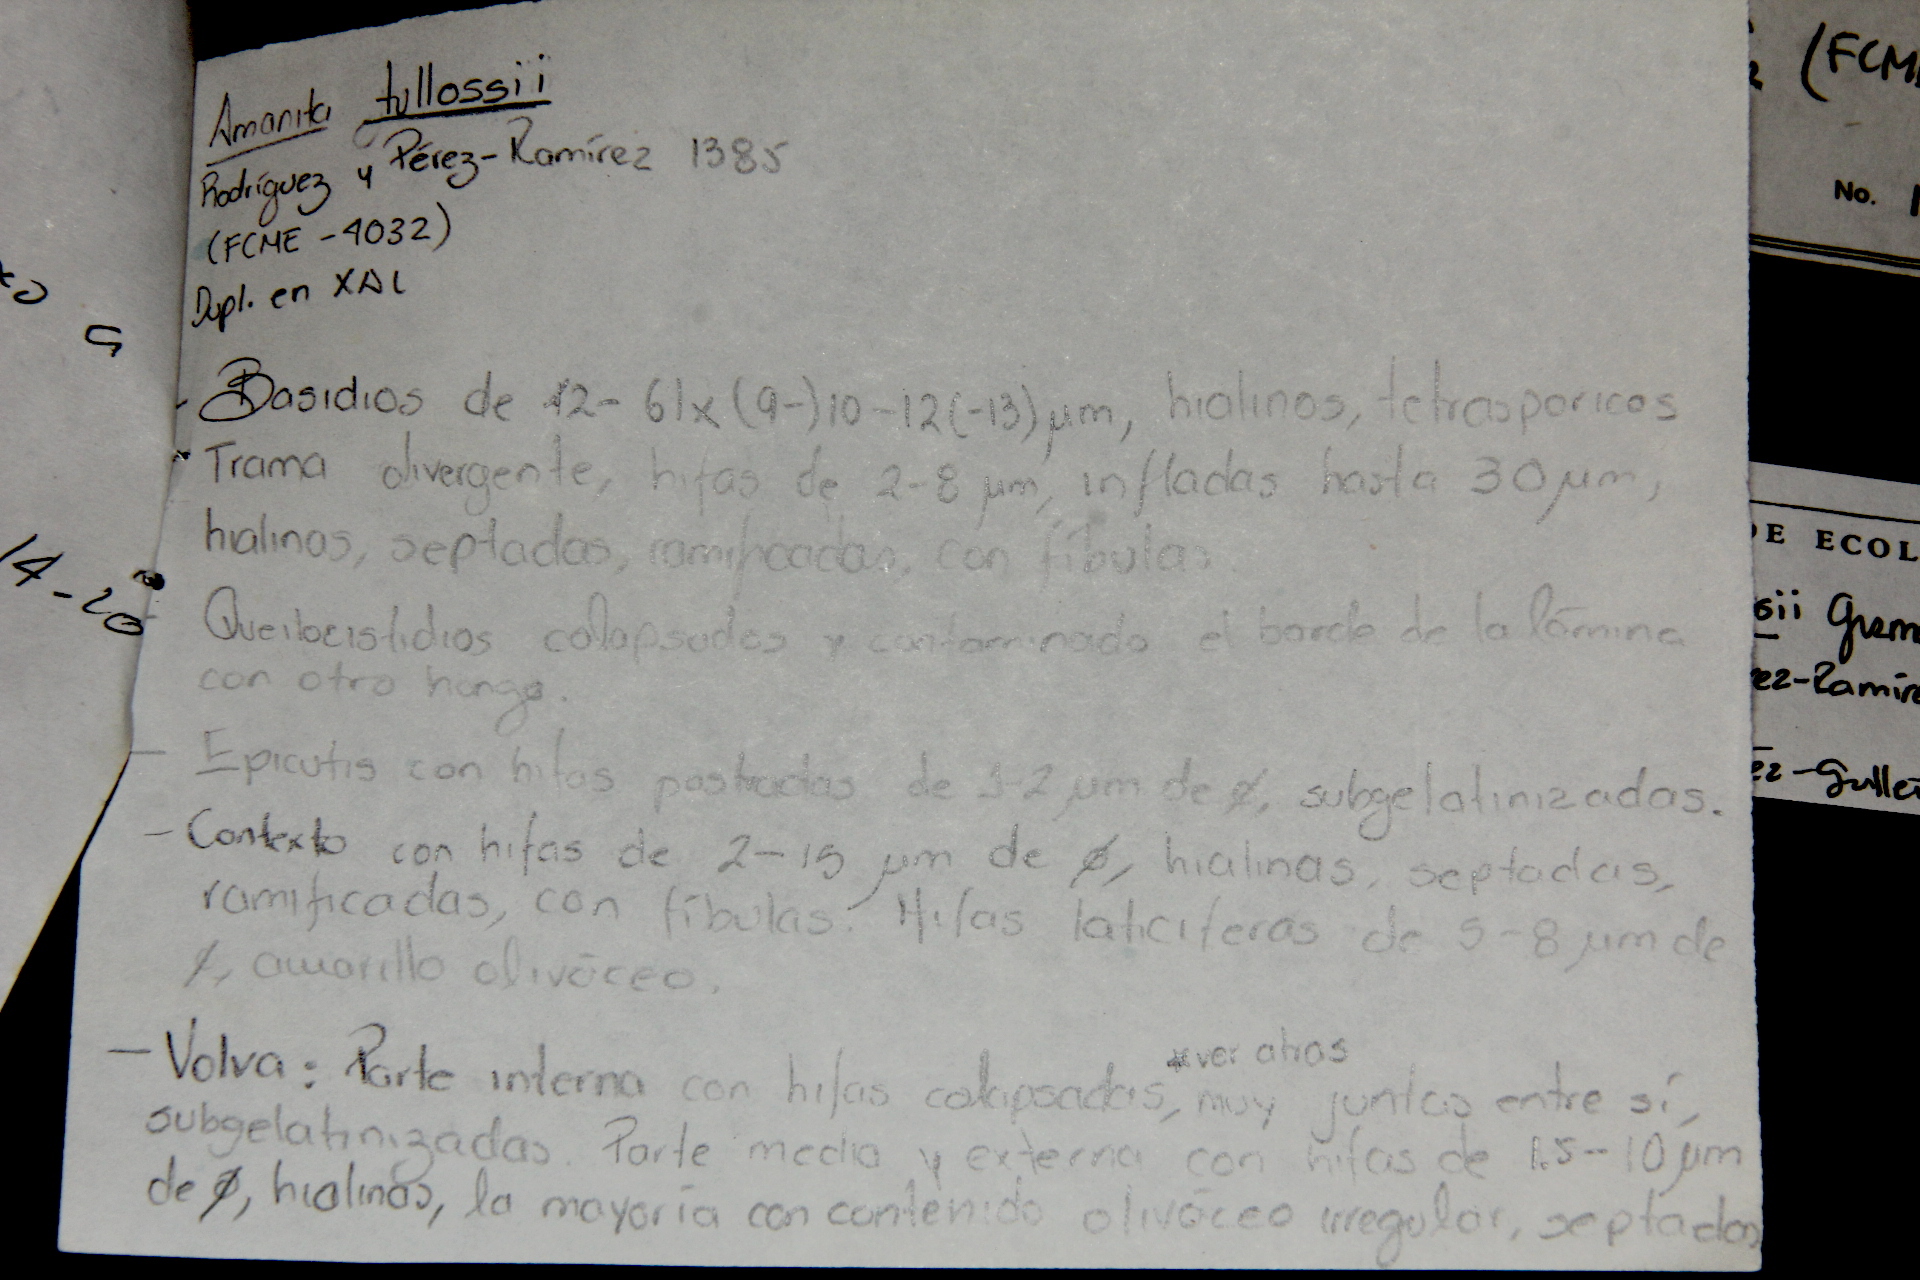 Amanita tullossii
Rodríguez y Pérez-Ramírez 1385
(FCME -4032)
Dupl. en XAL
- Basidios de 42- 61x (9-)10-12(-13)µm, hialinos, tetraspóricos
Trama divergente, hifas de 2-8 µm, infladas hasta 30µm,
hialinas, septadas, ramificadas, con fíbulas.
- Queilocistidios colapsados y contaminado el borde de la lámina
con otro hongo.
- Epicutis con hifas postradas de 1-2 µm de ø, subgelatinizadas.
- Contexto con hifas de 2-15 µm de ø, hialinas, septadas,
ramificadas, con fíbulas. Hifas laticíferas de 5-8 µm de
ø, amarillo oliváceo.
*ver atras
- Volva: Parte interna con hifas colapsadas, muy juntas entre sí,
subgelatinizadas. Parte media y externa con hifas de 1.5-10 µm
de ø, hialinas, la mayoría con contenido oliváceo irregular, septadas
14-20
(FCM
No. 1
DE ECOL
sii Guzm
ez-Ramíre
ez-Guille